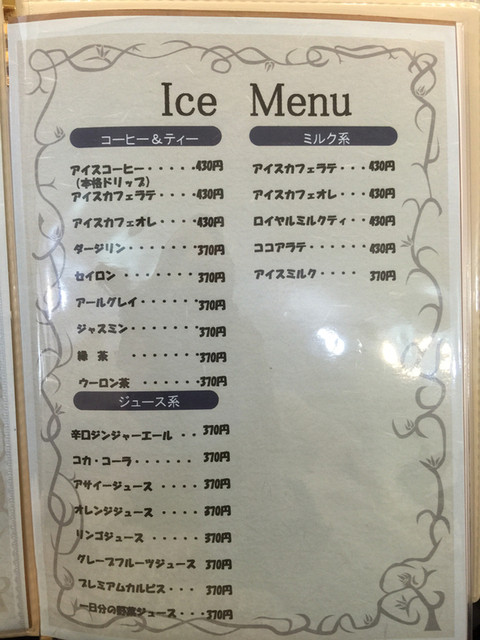 Ice Menu
コーヒー＆ティー
アイスコーヒー・・・・・430円
(本格ドリップ)
アイスカフェラテ・・・・430円
アイスカフェオレ・・・・430円
ダージリン・・・・・・・370円
セイロン・・・・・・・・370円
アールグレイ・・・・・・370円
ジャスミン・・・・・・・370円
緑 茶 ・・・・・・・370円
ウーロン茶 ・・・・・・370円
ジュース系
辛口ジンジャーエール ・・370円
コカ・コーラ・・・・・・ 370円
アサイージュース ・・・・370円
オレンジジュース ・・・・370円
リンゴジュース ・・・・370円
グレープフルーツジュース 370円
プレミアムカルピス・・・ 370円
一日分の野菜ジュース・・・370円
ミルク系
アイスカフェラテ・・・430円
アイスカフェオレ・・・430円
ロイヤルミルクティ・・430円
ココアラテ・・・・・430円
アイスミルク・・・・ 370円